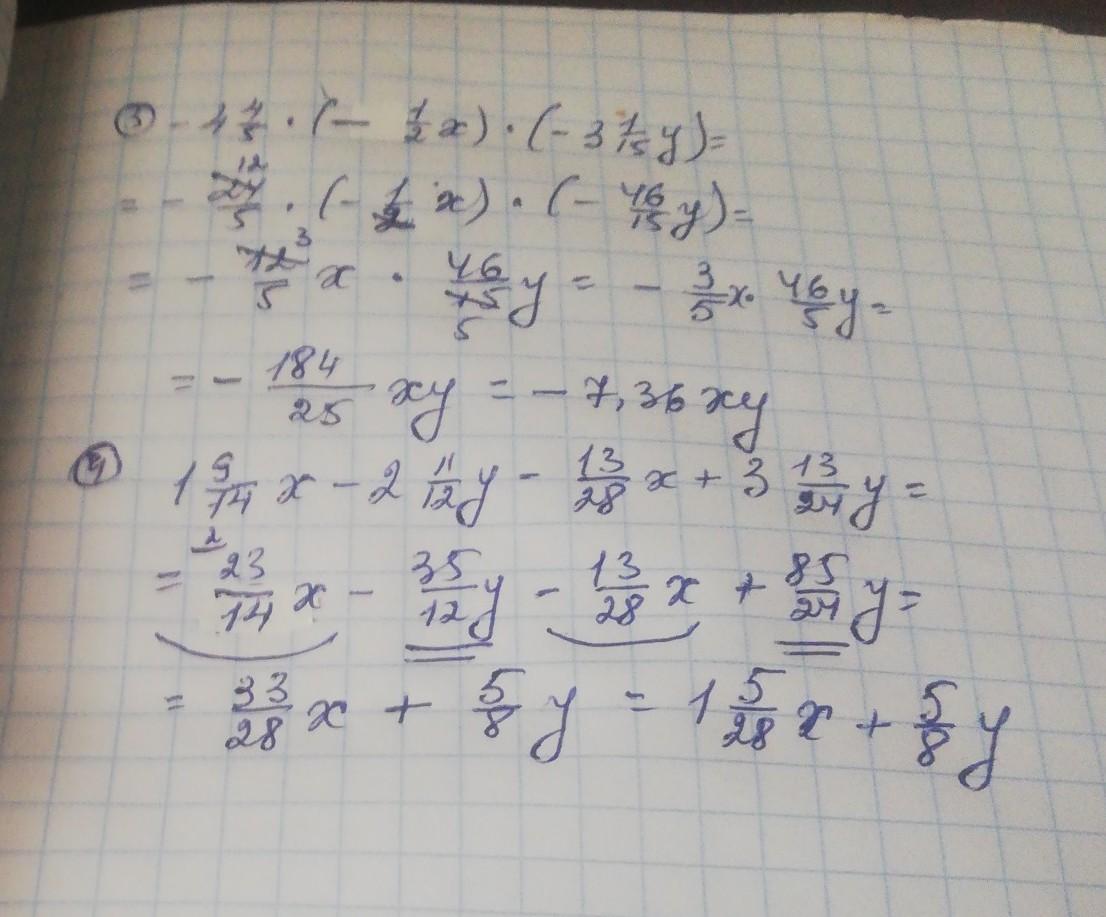 ③ - 4 4/5 · (- 1/2 x) · (- 3 1/15 y) =
= - 24/5 12 · (- 1/2 x) · (- 46/15 y) =
= - 12/5 3 x · 46/15 5 y = - 3/5 x · 46/5 y =
= - 184/25 xy = - 7,36 xy
④ 1 9/14 x - 2 11/12 y - 13/28 x + 3 13/24 y =
= 2 23/14 x - 35/12 y - 13/28 x + 85/24 y =
= 33/28 x + 5/8 y = 1 5/28 x + 5/8 y